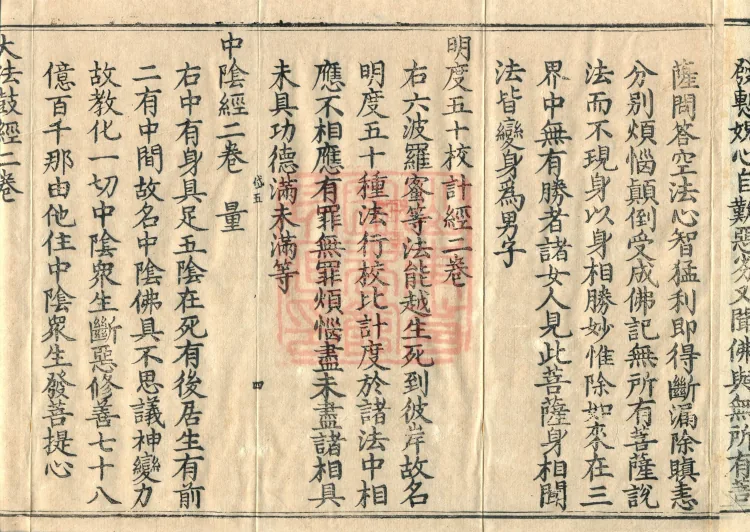 發慙媿心自
難惡
又聞佛與無所有菩
薩問答空法心智猛利即得斷漏除瞋恚
分別煩惱顛倒受成佛記無所有菩薩說
法而不現身以身相勝妙惟除如來在三
界中無有勝者諸女人見此菩薩身相聞
法皆變身爲男子
明度五十校計經二卷
右六波羅蜜等法能越生死到彼岸故名
明度五十種法行校比計度於諸法中相
應不相應有罪無罪煩惱盡未盡諸相具
未具功德滿未滿等
岱五 四
中陰經二卷 量
右中有身具足五陰在死有後居生有前
二有中間故名中陰佛具不思議神變力
故教化一切中陰衆生斷惡修善七十八
億百千那由他住中陰衆生發菩提心
大法鼓經二卷